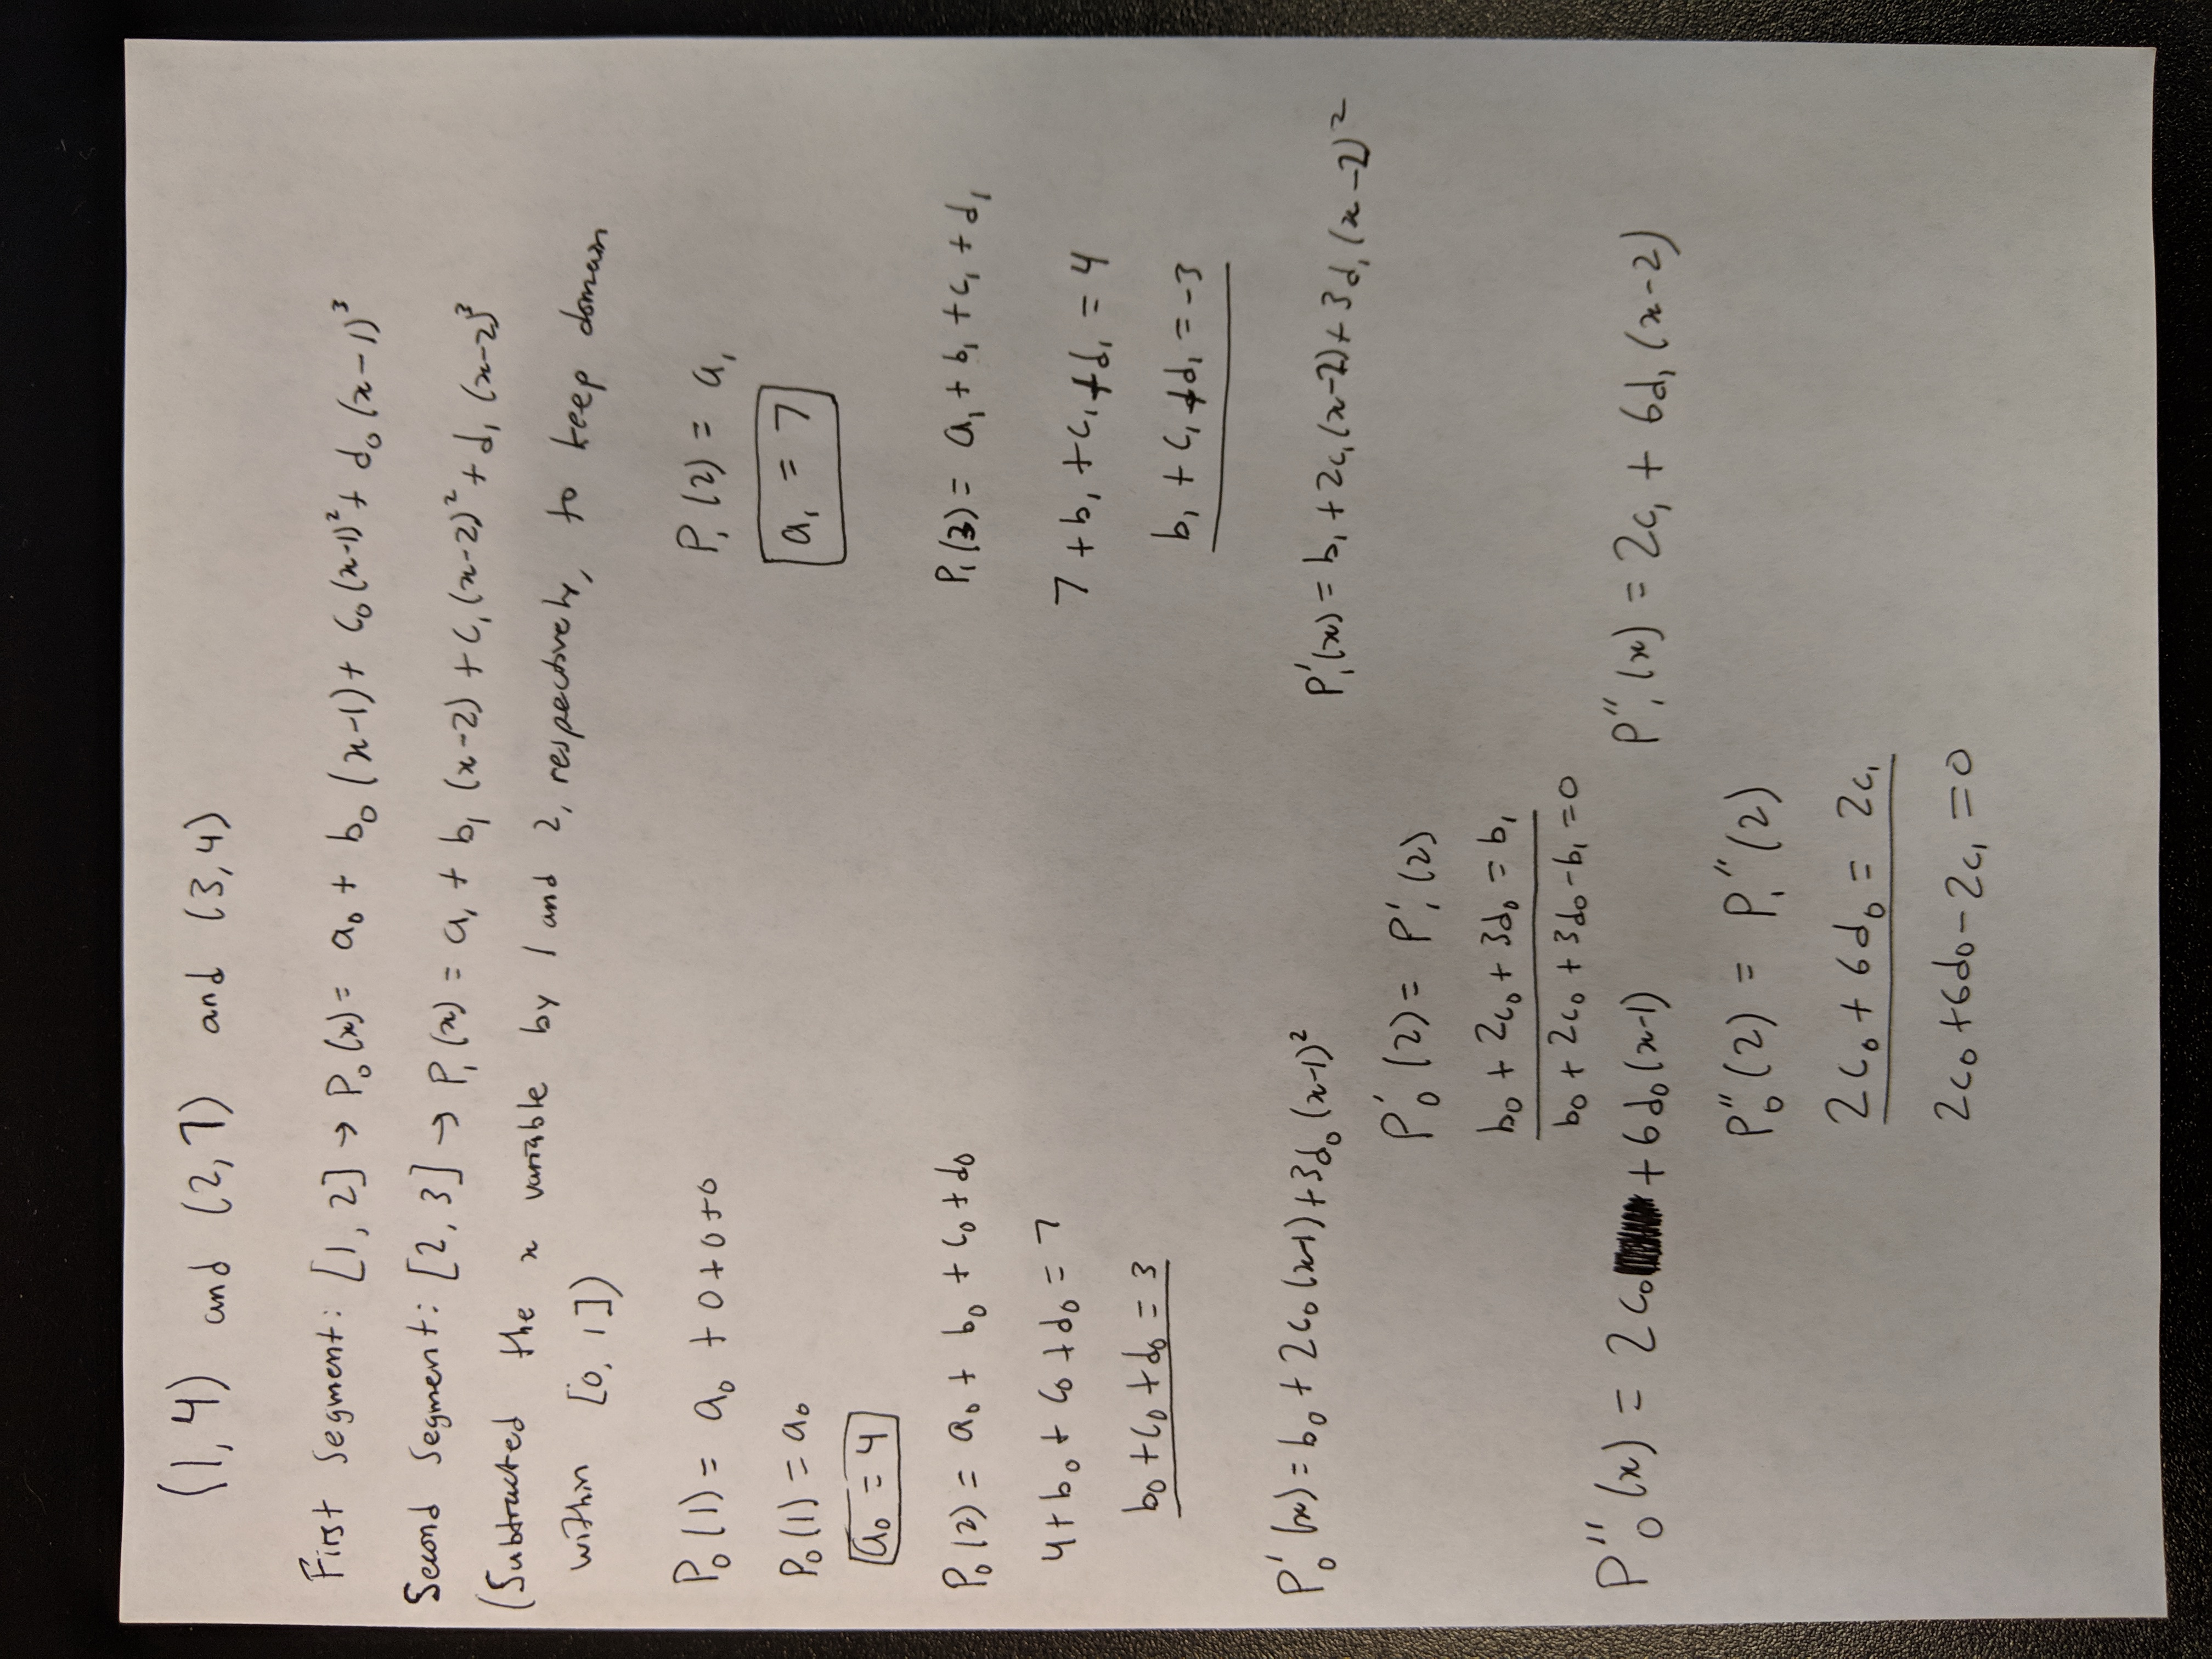 (1,4) and (2,7) and (3,4)
First Segment: [1,2] → P₀(x) = a₀ + b₀(x-1) + c₀(x-1)² + d₀(x-1)³
Second Segment: [2,3] → P₁(x) = a₁ + b₁(x-2) + c₁(x-2)² + d₁(x-2)³
(Subtracted the x variable by 1 and 2, respectively, to keep domain
within [0,1])
P₀(1) = a₀ + 0 + 0 + 0
P₀(1) = a₀
a₀ = 4
P₁(2) = a₁
a₁ = 7
P₀(2) = a₀ + b₀ + c₀ + d₀
4 + b₀ + c₀ + d₀ = 7
b₀ + c₀ + d₀ = 3
P₁(3) = a₁ + b₁ + c₁ + d₁
7 + b₁ + c₁ + d₁ = 4
b₁ + c₁ + d₁ = -3
P₀'(x) = b₀ + 2c₀(x-1) + 3d₀(x-1)²
P₁'(x) = b₁ + 2c₁(x-2) + 3d₁(x-2)²
P₀'(2) = P₁'(2)
b₀ + 2c₀ + 3d₀ = b₁
b₀ + 2c₀ + 3d₀ - b₁ = 0
P₀''(x) = 2c₀ + 6d₀(x-1)
P₁''(x) = 2c₁ + 6d₁(x-2)
P₀''(2) = P₁''(2)
2c₀ + 6d₀ = 2c₁
2c₀ + 6d₀ - 2c₁ = 0